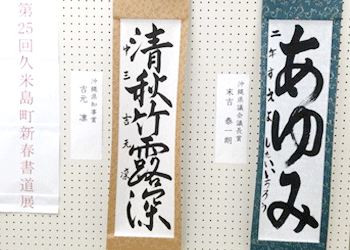 第25回久米島町新春書道展
沖縄県知事賞
吉元 凛
清秋竹露深
中三 吉元 凛
沖縄県議会議長賞
末吉 泰一朗
あゆみ
二年 すえよしたいいちろう